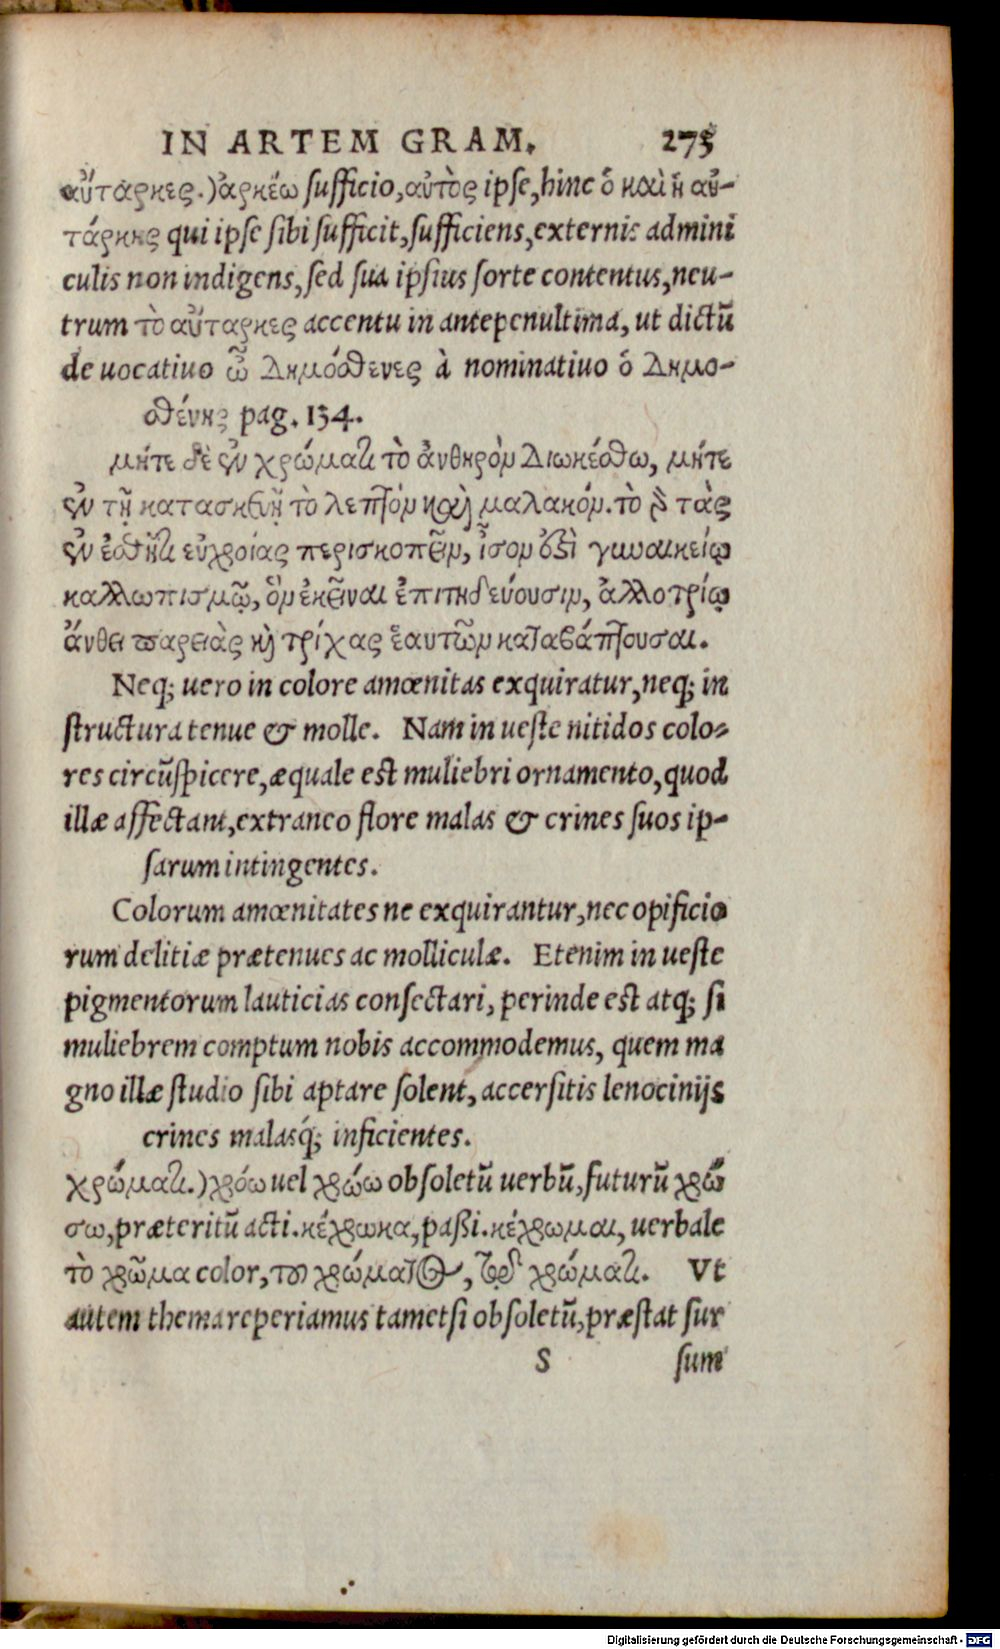 IN ARTEM GRAM. 275
αὔταρκες.) ἀρκέω sufficio, αὐτὸς ipse, hinc ὁ καὶ ἡ αὐ-
τάρκης qui ipse sibi sufficit, sufficiens, externis admini
culis non indigens, sed sua ipsius sorte contentus, neu-
trum τὸ αὔταρκες accentu in antepenultima, ut dictū
de uocatiuo ὦ Δημόσθενες à nominatiuo ὁ Δημο-
σθένης pag. 134.
μήτε δὲ ἐν χρώματι τὸ ἀνθηρὸν διωκέσθω, μήτε
ἐν τῇ κατασκευῇ τὸ λεπτὸν καὶ μαλακόν. τὸ γὰρ τὰς
ἐν ἐσθῆτι εὐχροίας περισκοπεῖν, ἴσον ἐστὶ γυναικείῳ
καλλωπισμῷ, ὃν ἐκεῖναι ἐπιτηδεύουσιν, ἀλλοτρίῳ
ἄνθει παρειὰς καὶ τρίχας ἑαυτῶν καταβάπτουσαι.
Neq; uero in colore amœnitas exquiratur, neq; in
structura tenue & molle. Nam in ueste nitidos colo-
res circūspicere, æquale est muliebri ornamento, quod
illæ affectant, extraneo flore malas & crines suos ip-
sarum intingentes.
Colorum amœnitates ne exquirantur, nec opificio
rum delitiæ prætenues ac molliculæ. Etenim in ueste
pigmentorum lauticias consectari, perinde est atq; si
muliebrem comptum nobis accommodemus, quem ma
gno illæ studio sibi aptare solent, accersitis lenocinijs
crines malasq́; inficientes.
χρώματι.) χρόω uel χρώω obsoletū uerbū, futurū χρώ
σω, præteritū acti. κέχρωκα, paßi. κέχρωμαι, uerbale
τὸ χρῶμα color, τοῦ χρώματος, τῷ χρώματι. Vt
autem thema reperiamus tametsi obsoletū, præstat sur
S sum
Digitalisierung gefördert durch die Deutsche Forschungsgemeinschaft - DFG